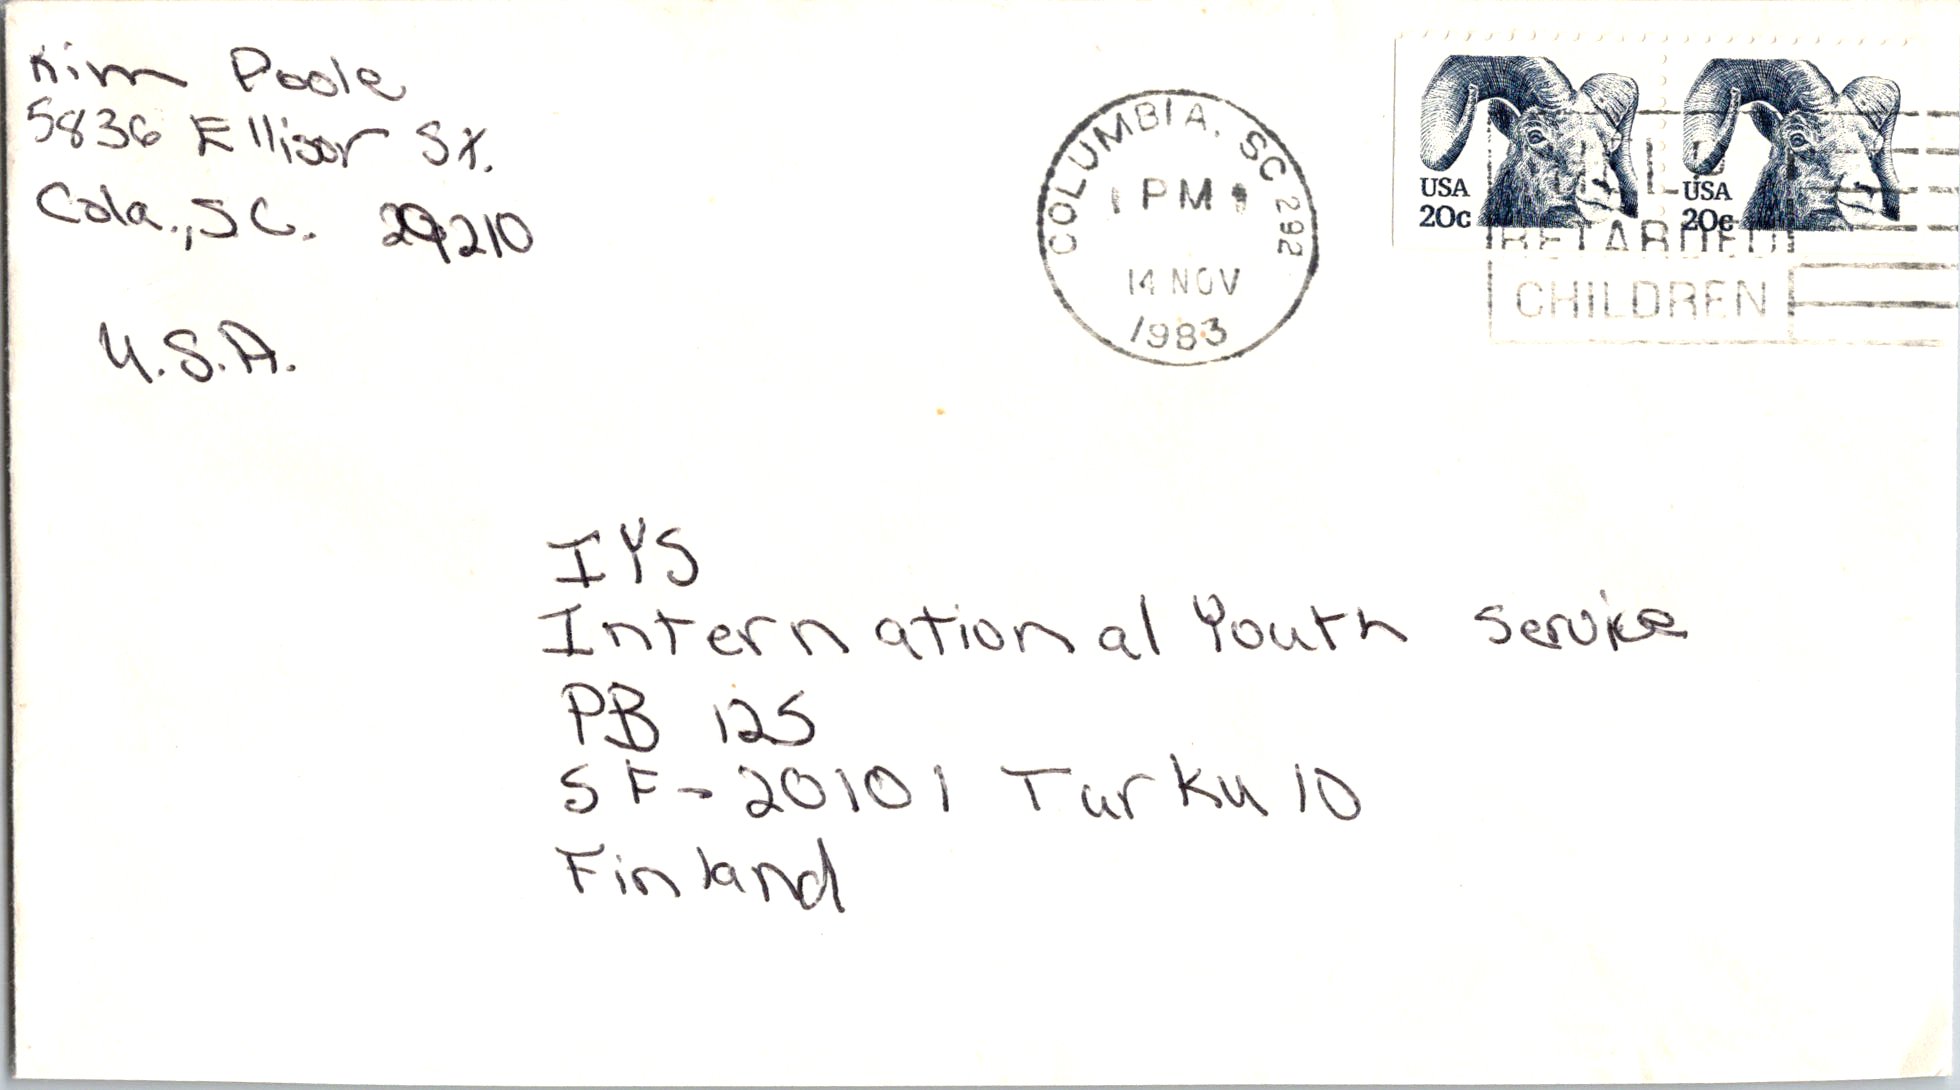 Kim Poole
5836 Ellisor St.
Cola., S.C. 29210
U.S.A.
COLUMBIA, SC 292
PM
14 NOV
1983
USA
20c
USA
20c
RETARDED
CHILDREN
IYS
International Youth Service
PB 125
SF-20101 Turku 10
Finland